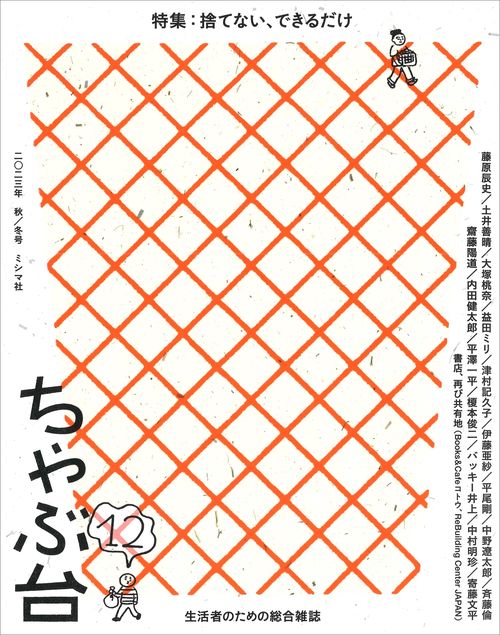 特集：捨てない、できるだけ
藤原辰史／土井善晴／大塚桃奈／益田ミリ／津村記久子／伊藤亜紗／平尾剛／中野遼太郎／斉藤倫
齋藤陽道／内田健太郎／平澤一平／榎本俊二／バッキー井上／中村明珍／寄藤文平
書店、再び共有地（Books&Cafeコトウ、ReBuilding Center JAPAN）
二〇二三年　秋／冬号　ミシマ社
ちゃぶ台
12
生活者のための総合雑誌